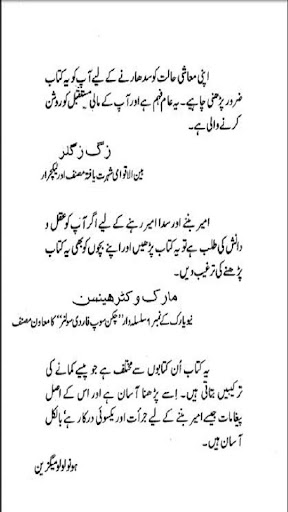 اپنی معاشی حالت کو سدھارنے کے لیے آپ کو یہ کتاب
ضرور پڑھنی چاہیے۔ یہ عام فہم ہے اور آپ کے مالی مستقبل کو روشن
کرنے والی ہے۔
زگ زگلر
بین الاقوامی شہرت یافتہ مصنف اور لیکچرار
امیر بننے اور سدا امیر رہنے کے لیے اگر آپ کو عقل و
دانش کی طلب ہے تو یہ کتاب پڑھیں اور اپنے بچوں کو بھی یہ کتاب
پڑھنے کی ترغیب دیں۔
مارک وکٹر ھینسن
نیویارک کے نمبر ۱ سلسلہ دار ”چکن سوپ فار دی سولز“ کا معاون مصنف
یہ کتاب اُن کتابوں سے مختلف ہے جو پیسے کمانے کی
ترکیبیں بتاتی ہیں۔ اِسے پڑھنا آسان ہے اور اس کے اصل
پیغامات جیسے امیر بننے کے لیے جرأت اور یکسوئی درکار ہے بالکل
آسان ہیں۔
ہونولولو میگزین